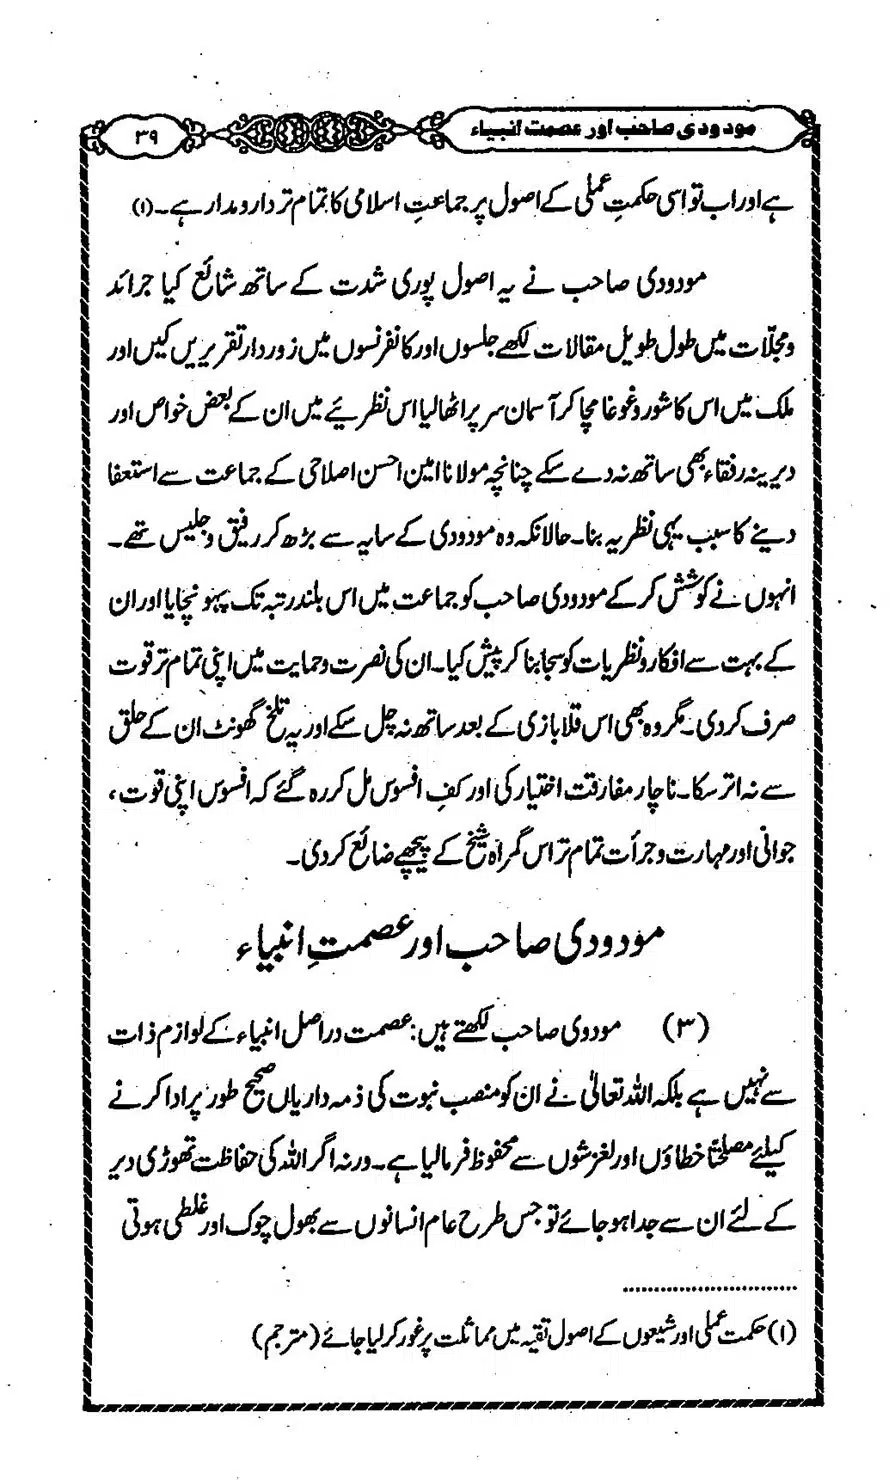 مودودی صاحب اور عصمت انبیاء
۳۹
ہے اور اب تو اسی حکمتِ عملی کے اصول پر جماعتِ اسلامی کا تمام تر دارومدار ہے۔(۱)
مودودی صاحب نے یہ اصول پوری شدت کے ساتھ شائع کیا جرائد
ومجلّات میں طول طویل مقالات لکھے جلسوں اور کانفرنسوں میں زوردار تقریریں کیں اور
ملک میں اس کا شور وغوغا مچا کر آسمان سر پر اٹھا لیا اس نظریئے میں ان کے بعض خواص اور
دیرینہ رفقاء بھی ساتھ نہ دے سکے چنانچہ مولانا امین احسن اصلاحی کے جماعت سے استعفا
دینے کا سبب یہی نظریہ بنا۔ حالانکہ وہ مودودی کے سایہ سے بڑھ کر رفیق وجلیس تھے۔
انہوں نے کوشش کر کے مودودی صاحب کو جماعت میں اس بلند رتبہ تک پہونچایا اور ان
کے بہت سے افکار ونظریات کو سجا بنا کر پیش کیا۔ ان کی نصرت وحمایت میں اپنی تمام تر قوت
صرف کر دی۔ مگر وہ بھی اس قلابازی کے بعد ساتھ نہ چل سکے اور یہ تلخ گھونٹ ان کے حلق
سے نہ اتر سکا۔ ناچار مفارقت اختیار کی اور کفِ افسوس مل کر رہ گئے کہ افسوس اپنی قوت،
جوانی اور مہارت وجرأت تمام تر اس گمراہ شیخ کے پیچھے ضائع کر دی۔
مودودی صاحب اور عصمتِ انبیاء
(۳) مودوی صاحب لکھتے ہیں: عصمت دراصل انبیاء کے لوازم ذات
سے نہیں ہے بلکہ اللہ تعالیٰ نے ان کو منصب نبوت کی ذمہ داریاں صحیح طور پر ادا کرنے
کیلئے مصلحتاً خطاؤں اور لغزشوں سے محفوظ فرمالیا ہے۔ ورنہ اگر اللہ کی حفاظت تھوڑی دیر
کے لئے ان سے جدا ہو جائے تو جس طرح عام انسانوں سے بھول چوک اور غلطی ہوتی
(۱) حکمت عملی اور شیعوں کے اصول تقیہ میں مماثلت پر غور کر لیا جائے (مترجم)